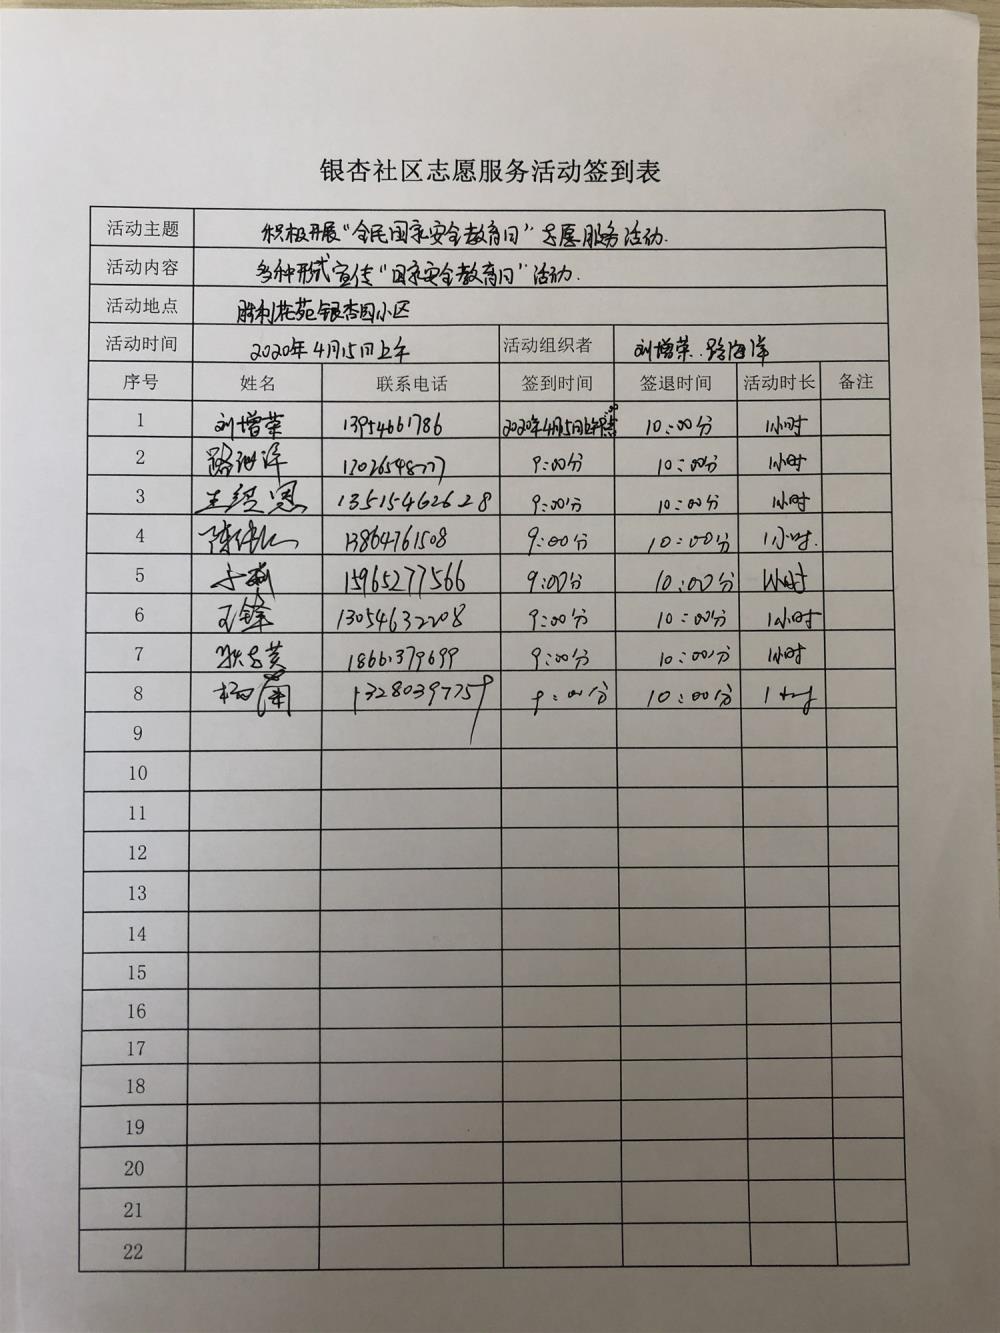 银杏社区志愿服务活动签到表
活动主题 积极开展"全民国家安全教育日"志愿服务活动.
活动内容 多种形式宣传"国家安全教育日"活动.
活动地点 胜利花苑银杏园小区
活动时间 2020年4月15日上午 活动组织者 刘增荣.路海洋
序号 姓名 联系电话 签到时间 签退时间 活动时长 备注
1 刘增荣 13954661786 10:00分 1小时
2 路海洋 9:00分 10:00分 1小时
3 13515462628 9:00分 10:00分 1小时
4 13864761508 9:00分 10:00分 1小时.
5 15965277566 9:00分 10:00分 1小时
6 王锋 13054632208 9:00分 10:00分 1小时
7 18661379699 9:00分 10:00分 1小时
8 13280397759 9:00分 10:00分
9
10
11
12
13
14
15
16
17
18
19
20
21
22